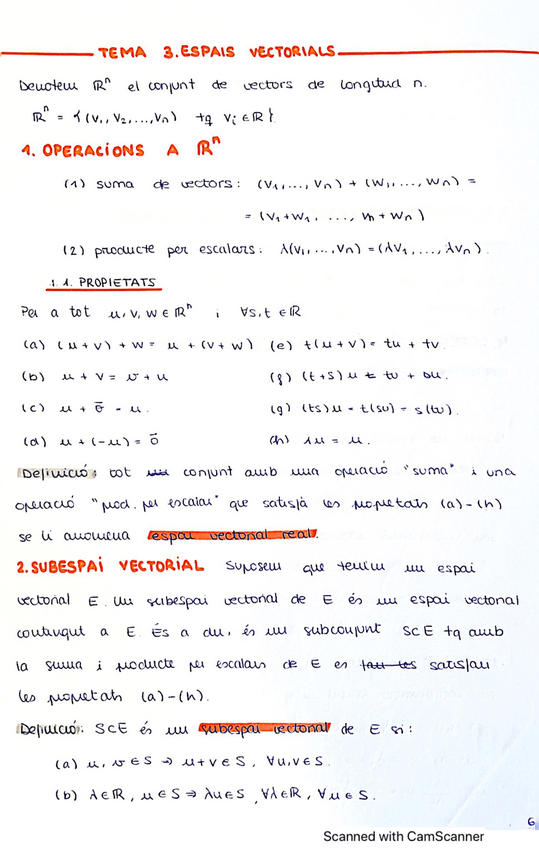 TEMA 3. ESPAIS VECTORIALS
Denotem ℝⁿ el conjunt de vectors de longitud n.
ℝⁿ = { (v₁, v₂, ..., vₙ) tq vᵢ ∈ ℝ }.
1. OPERACIONS A ℝⁿ
(1) suma de vectors: (v₁, ..., vₙ) + (w₁, ..., wₙ) =
= (v₁+w₁, ..., vₙ+wₙ)
(2) producte per escalars: λ(v₁, ..., vₙ) = (λv₁, ..., λvₙ).
1.1. PROPIETATS
Per a tot u, v, w ∈ ℝⁿ i ∀s, t ∈ ℝ
(a) (u+v) + w = u + (v+w) (e) t(u+v) = tu + tv.
(b) u + v = v + u (f) (t+s)u = tu + su.
(c) u + 0⃗ = u. (g) (ts)u = t(su) = s(tu).
(d) u + (-u) = 0⃗ (h) 1u = u.
Definició: tot conjunt amb una operació "suma" i una
operació "prod. per escalar" que satisfà les propietats (a)-(h)
se li anomena espai vectorial real.
2. SUBESPAI VECTORIAL Suposem que tenim un espai
vectorial E. Un subespai vectorial de E és un espai vectorial
contingut a E. És a dir, és un subconjunt S⊂E tq amb
la suma i producte per escalars de E en tot les satisfan
les propietats (a)-(h).
Definició: S⊂E és un subespai vectorial de E si:
(a) u, v ∈ S ⇒ u+v ∈ S, ∀u, v ∈ S.
(b) λ ∈ ℝ, u ∈ S ⇒ λu ∈ S, ∀λ ∈ ℝ, ∀u ∈ S.
6
Scanned with CamScanner